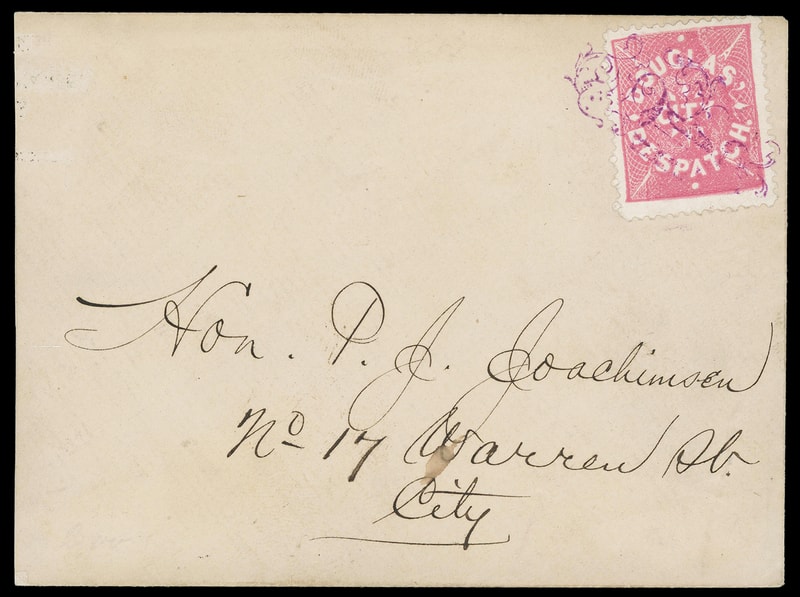 DOUGLAS
CITY
DESPATCH.
Hon. P. J. Joachimsen
No 17 Warren St.
City